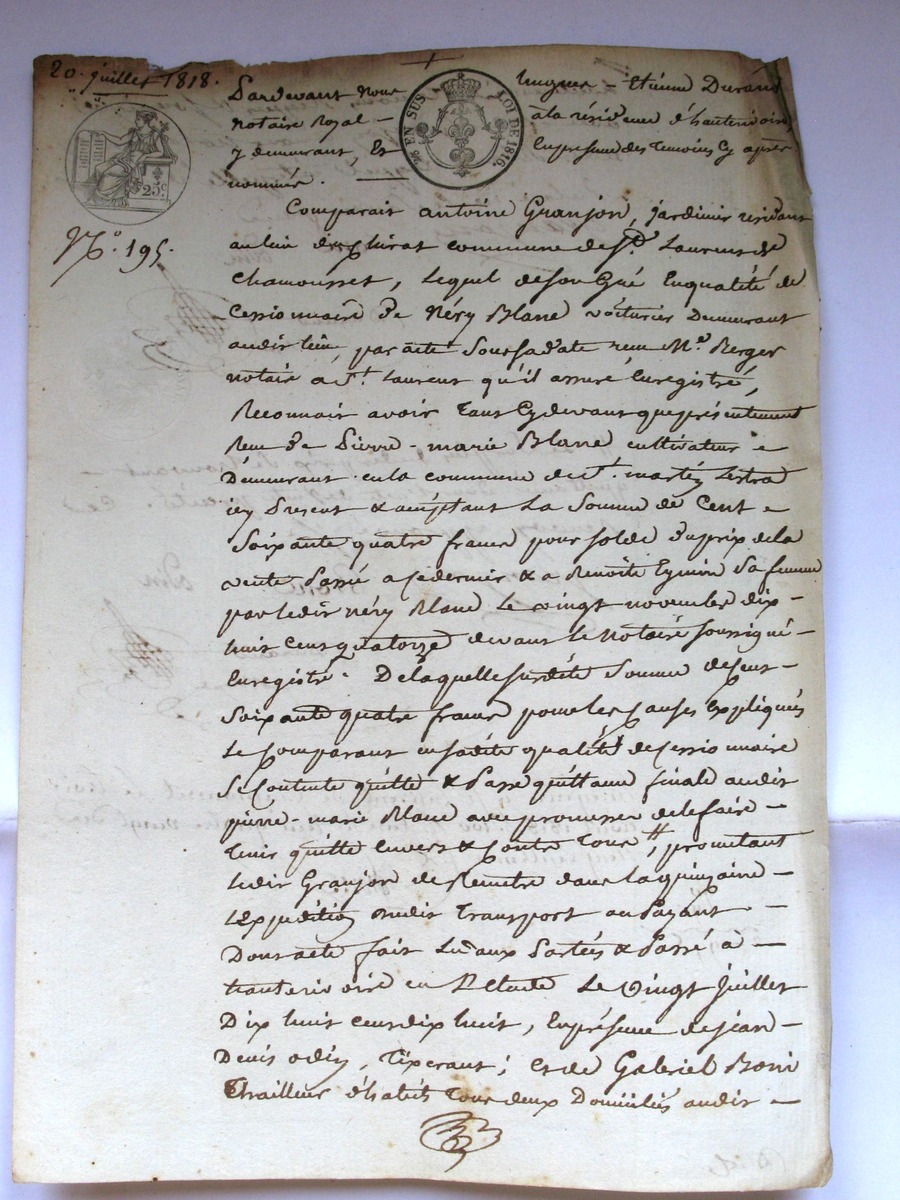 20. juillet 1818.
EN SUS
LOI DE 1816.
25 c
N.° 195.
Pardevant Nous hugues - Etiénne Durand
Notaire Royal - à la résidence d'hauterivoire,
y demeurant, Et En présence des Temoins Cy après
nommés.
Comparait antoine Granjon, jardinier résidant
au lieu de Chirat commune de St. Laurent de
Chamousset, Lequel de son Gré En qualité de
Cessionnaire de Néry Blanc voiturier Demeurant
audit lieu, par acte Sous sa date reçu Me. Berger
notaire a St. Laurent qu'il assure Enregistré,
Reconnait avoir Tant Cydevant que présentement
Reçu de Pierre - marie Blanc cultivateur
Demeurant en la commune de St. martin Lestra
icy Present & acceptant La Somme de Cent
Soixante quatre francs pour solde du prix de la
vente Passée a ce dernier & a Benoite Eymin Sa femme
par ledit Néry Blanc Le vingt novembre dix-
huit cent quatorze devant le Notaire soussigné -
Enregistré. De laquelle susdite Somme de Cent -
Soixante quatre francs pour les Causes Expliquées
Le Comparant en sadite qualité de Cessionnaire
Se Contente quitte & Passe quittance finale audit
pierre - marie Blanc avec promesse de le faire -
Tenir quitte Envers & Contre Tous //, prometant
Ledit Granjon de Remettre dans la quinzaine -
L'Expedition dudit Transport au Payant -
Dont acte fait Lu aux Parties & Passé à -
hauterivoire en L'Etude Le Vingt Juillet
Dix huit cent dix huit, En présence de jean -
Denis odin, Tixerant; et de Gabriel
Thailleur d'habits Tous deux Domiciliés audit -